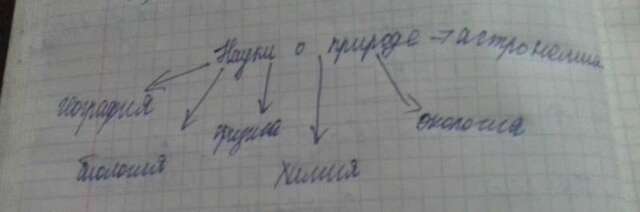 Науки о природе → астрономия
география
физика
экология
биология
химия